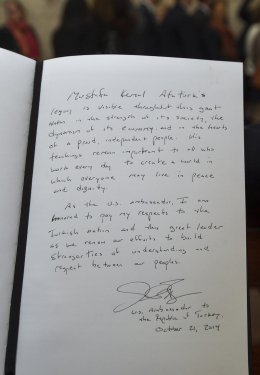 Mustafa Kemal Atatürk's
legacy is visible throughout this great
nation in the strength of its society, the
dynamism of its economy, and in the hearts
of a proud, independent people. His
teachings remain important to all who
work every day to create a world in
which everyone may live in peace
and dignity.
As the U.S. ambassador, I am
honored to pay my respects to the
Turkish nation and this great leader
as we renew our efforts to build
stronger ties of understanding and
respect between our peoples.
U.S. Ambassador to
the Republic of Turkey
October 21, 2014